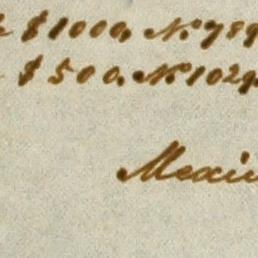 $1000, No. 789
$500. No. 1029
Mexi